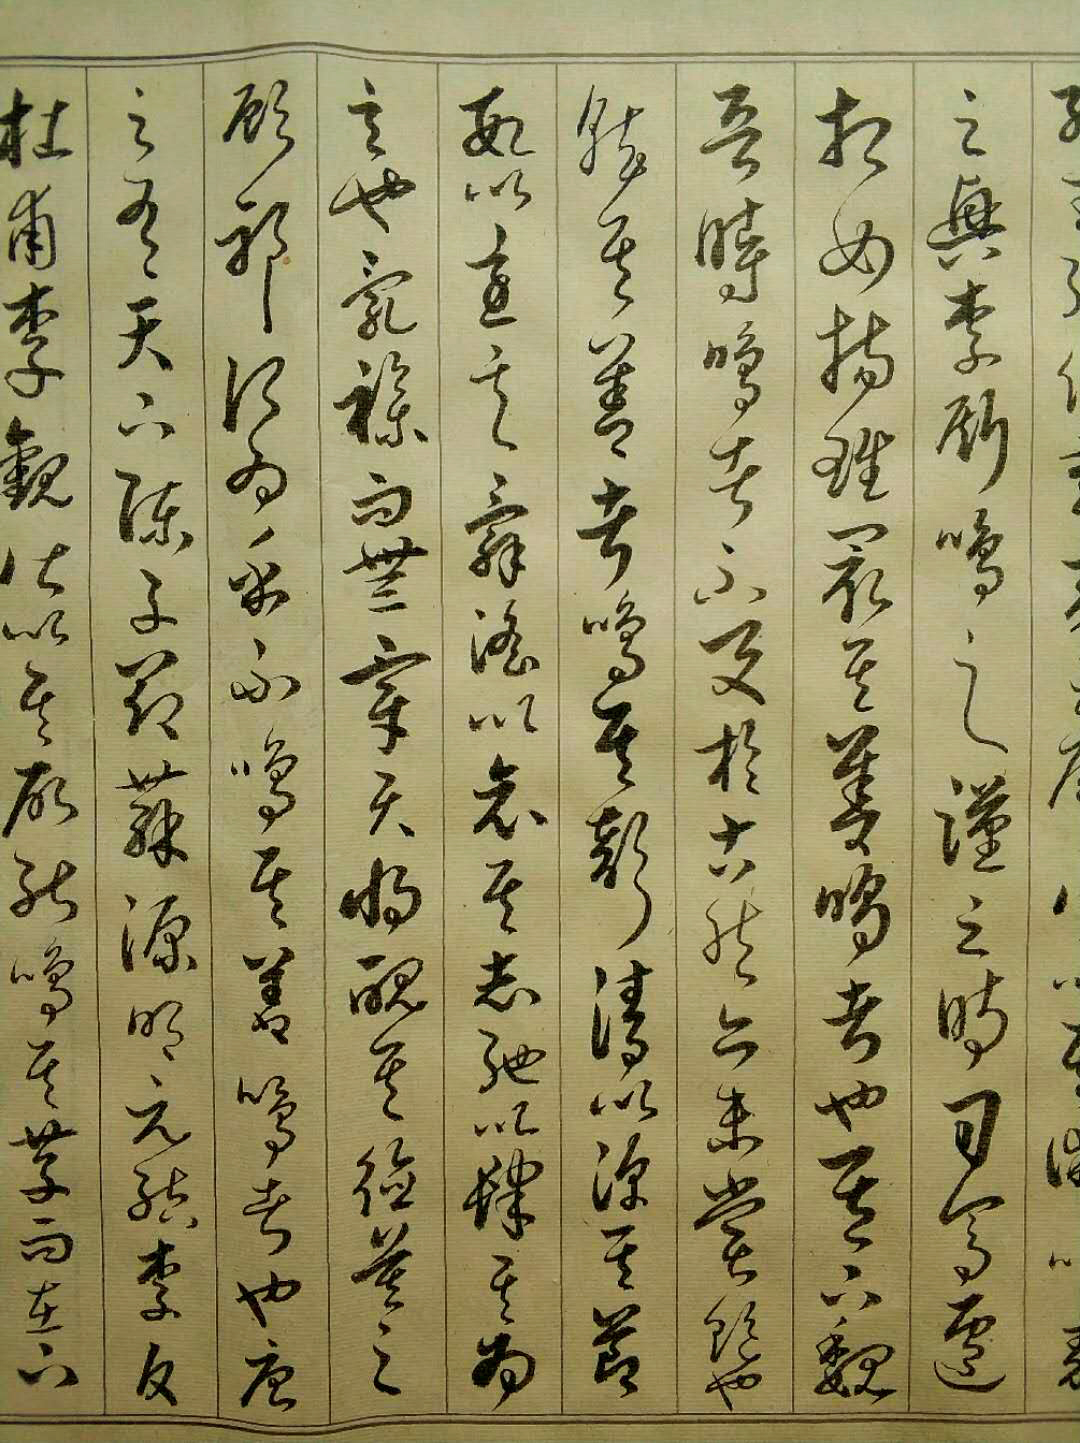 之興李斯鳴之漢之時司馬遷
相如揚雄最其善鳴者也其下魏
晉時鳴者不及於古然亦未嘗絕也
就其善者鳴其聲清以浮其節
數以急其辭淫以哀其志弛以肆其為
言也亂雜而無章天將醜其德莫之
顧邪何為乎不鳴其善鳴者也唐
之有天下陳子昂蘇源明元結李白
杜甫李觀皆以其所能鳴其存而在下